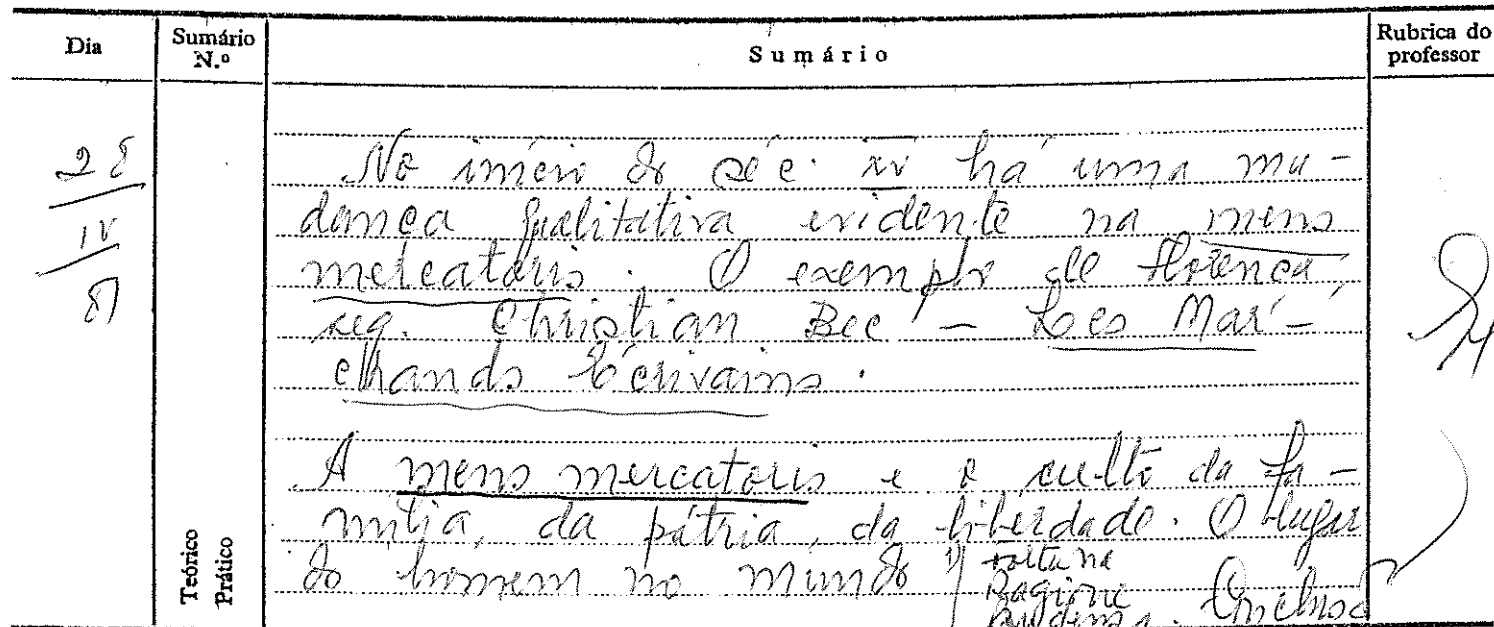 Dia
Sumário N.º
Sumário
Rubrica do professor
28
IV
81
No início do séc. XV há uma mu-
dança qualitativa evidente na mens
mercatoris. O exemplo de Florença,
seg. Christian Bec - Les Mar-
chands Écrivains.
A mens mercatoris e o culto da fa-
mília, da pátria, da liberdade. O lugar
do homem no mundo
Ragione
Teórico
Prático